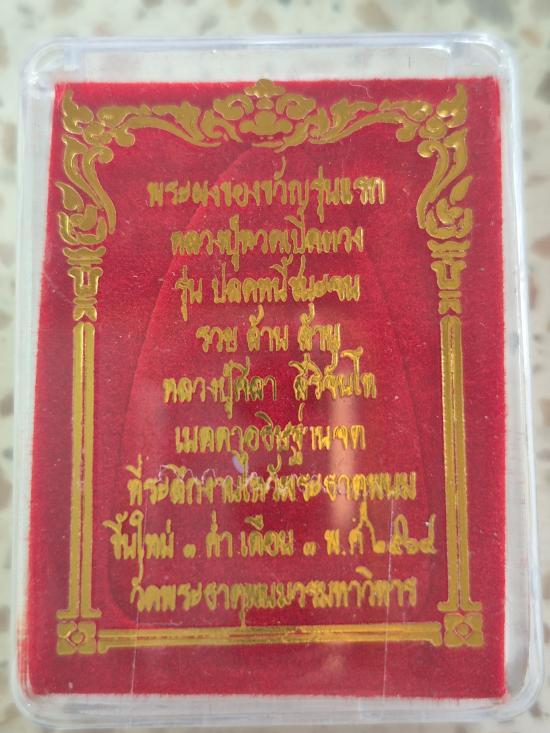 พระผงของขวัญรุ่นแรก
หลวงปู่ทวดเปิดดวง
รุ่น ปลดหนี้ชนะจน
รวย ล้าน ล้าน
หลวงปู่ศิลา สิริจันโท
เมตตาอธิษฐานจิต
ที่ระลึกงานไหว้พระธาตุพนม
ขึ้นใหม่ ๓ ค่ำ เดือน ๓ พ.ศ. ๒๕๖๔
วัดพระธาตุพนมวรมหาวิหาร